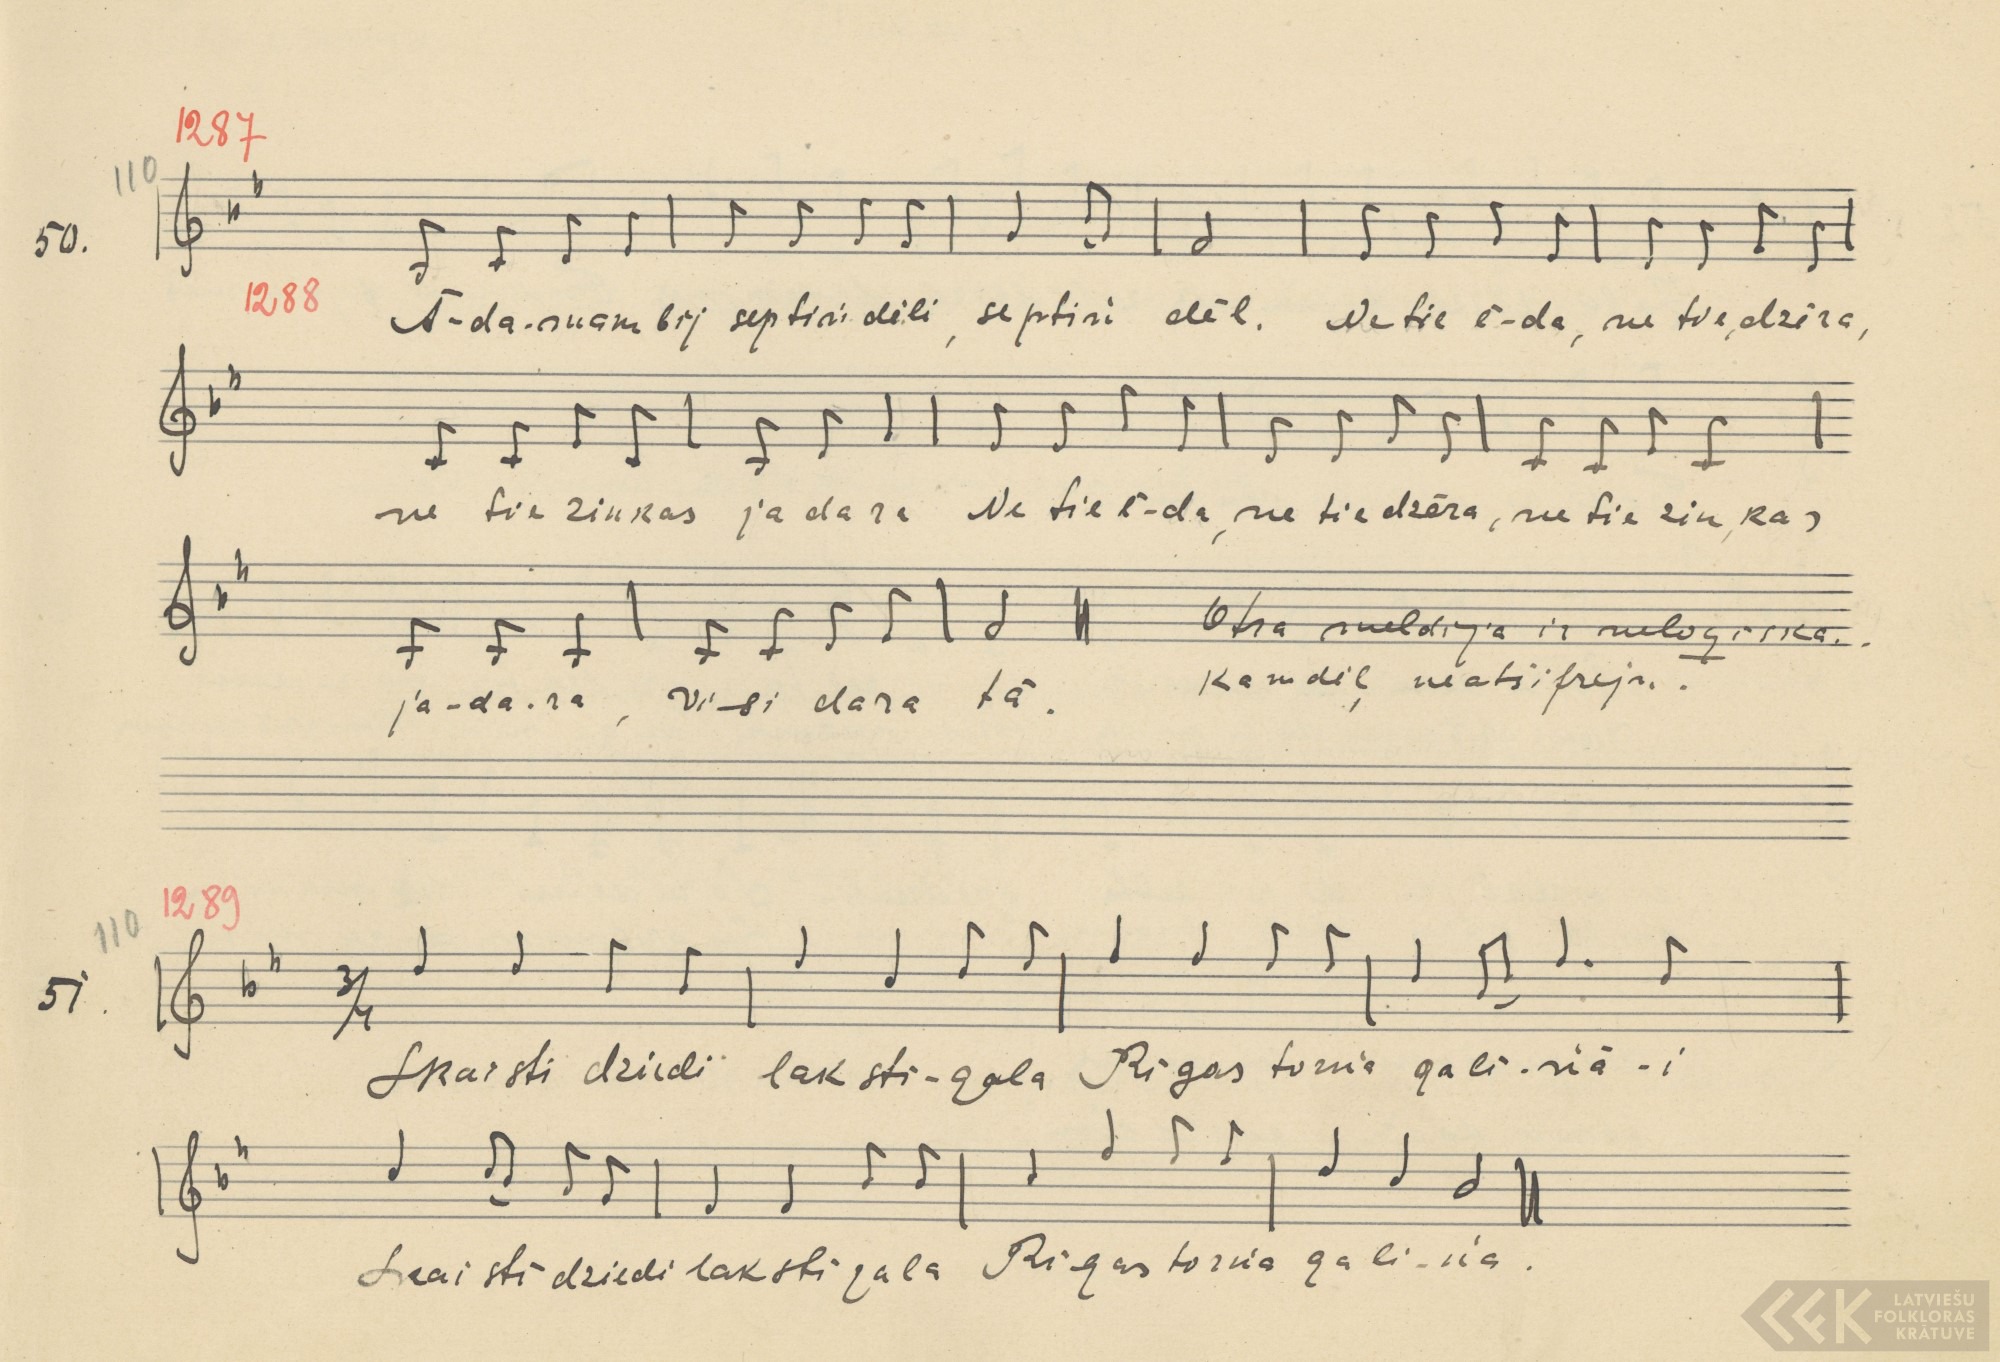 1287
110
50.
1288
Ā-da-mam bij septiņi dēli, septiņi dēl. Ne tie ē-da, ne tie dzēra,
ne tie zin kas ja dara Ne tie ē-da, ne tie dzēra, ne tie zin, kas
Otra meldija ir neloģiska.
ja-da-ra, vi-si dara tā.
kamdēļ neatšifrēju.
1289
110
51.
3/4
Skaisti dziedi laksti-gala Rīgas torņa gali-ņā-i
Skaisti dziedi lakstigala Rī-gas torņa gali-ņa.
LATVIEŠU
FOLKLORAS
KRĀTUVE